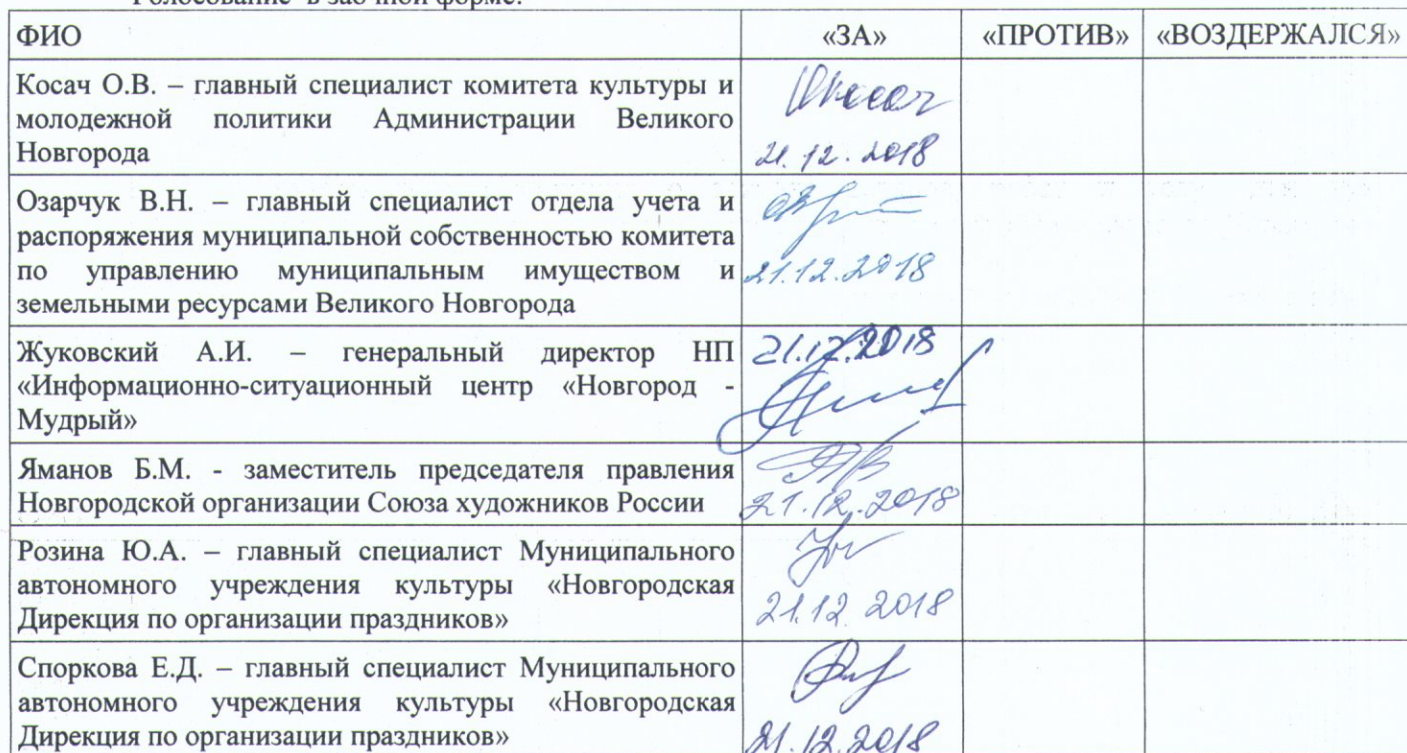 Голосование в заочной форме:
ФИО «ЗА» «ПРОТИВ» «ВОЗДЕРЖАЛСЯ»
Косач О.В. – главный специалист комитета культуры и
молодежной политики Администрации Великого
Новгорода
21.12.2018
Озарчук В.Н. – главный специалист отдела учета и
распоряжения муниципальной собственностью комитета
по управлению муниципальным имуществом и
земельными ресурсами Великого Новгорода
21.12.2018
Жуковский А.И. – генеральный директор НП
«Информационно-ситуационный центр «Новгород -
Мудрый»
21.12.2018
Яманов Б.М. - заместитель председателя правления
Новгородской организации Союза художников России
21.12.2018
Розина Ю.А. – главный специалист Муниципального
автономного учреждения культуры «Новгородская
Дирекция по организации праздников»
21.12.2018
Споркова Е.Д. – главный специалист Муниципального
автономного учреждения культуры «Новгородская
Дирекция по организации праздников»
21.12.2018